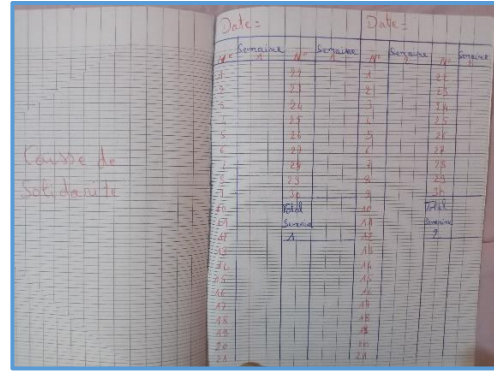 Caisse de
Solidarité
Date:
Date:
N° Semaine 1 N° Semaine N° Semaine N° Semaine
1 22 1 22
2 23 2 23
3 24 3 24
4 25 4 25
5 26 5 26
6 27 6 27
7 28 7 28
8 29 8 29
9 30 9 30
10 Total 10 Total
11 Semaine 11 Semaine
12 1 12 2
13 13
14 14
15 15
16 16
17 17
18 18
19 19
20 20
21 21